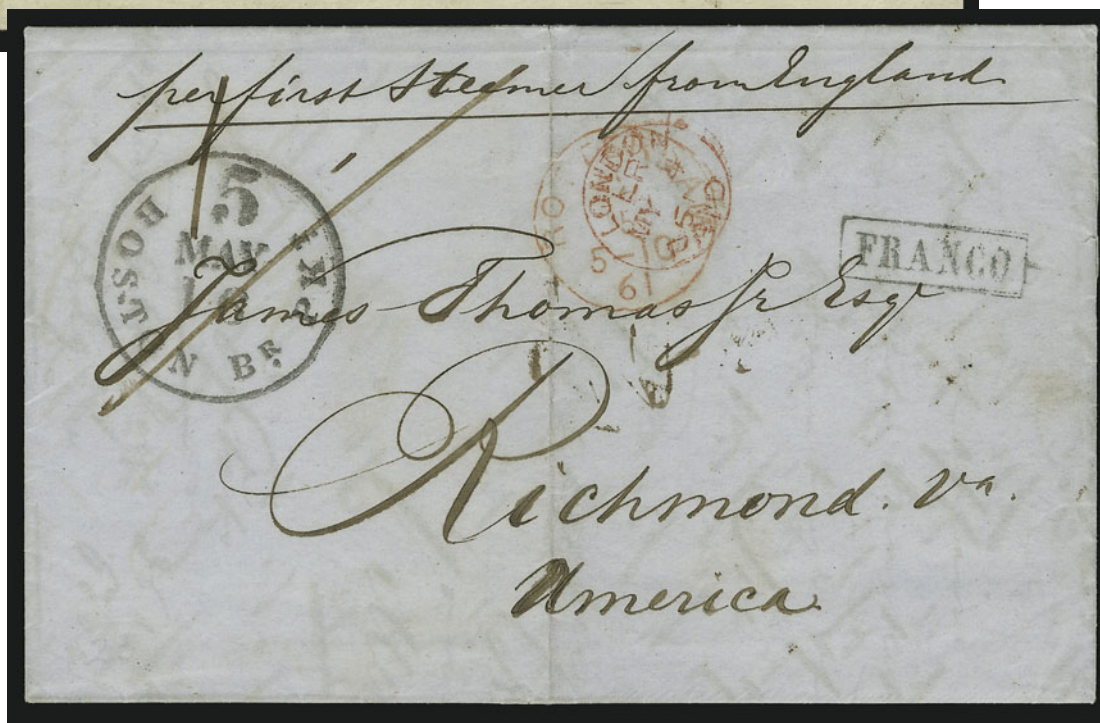 per first Steamer from England
5
MAY
BOSTON BR. PKT
LONDON
5
61
FRANCO
James Thomas Jr Esqr
Richmond. Va.
America